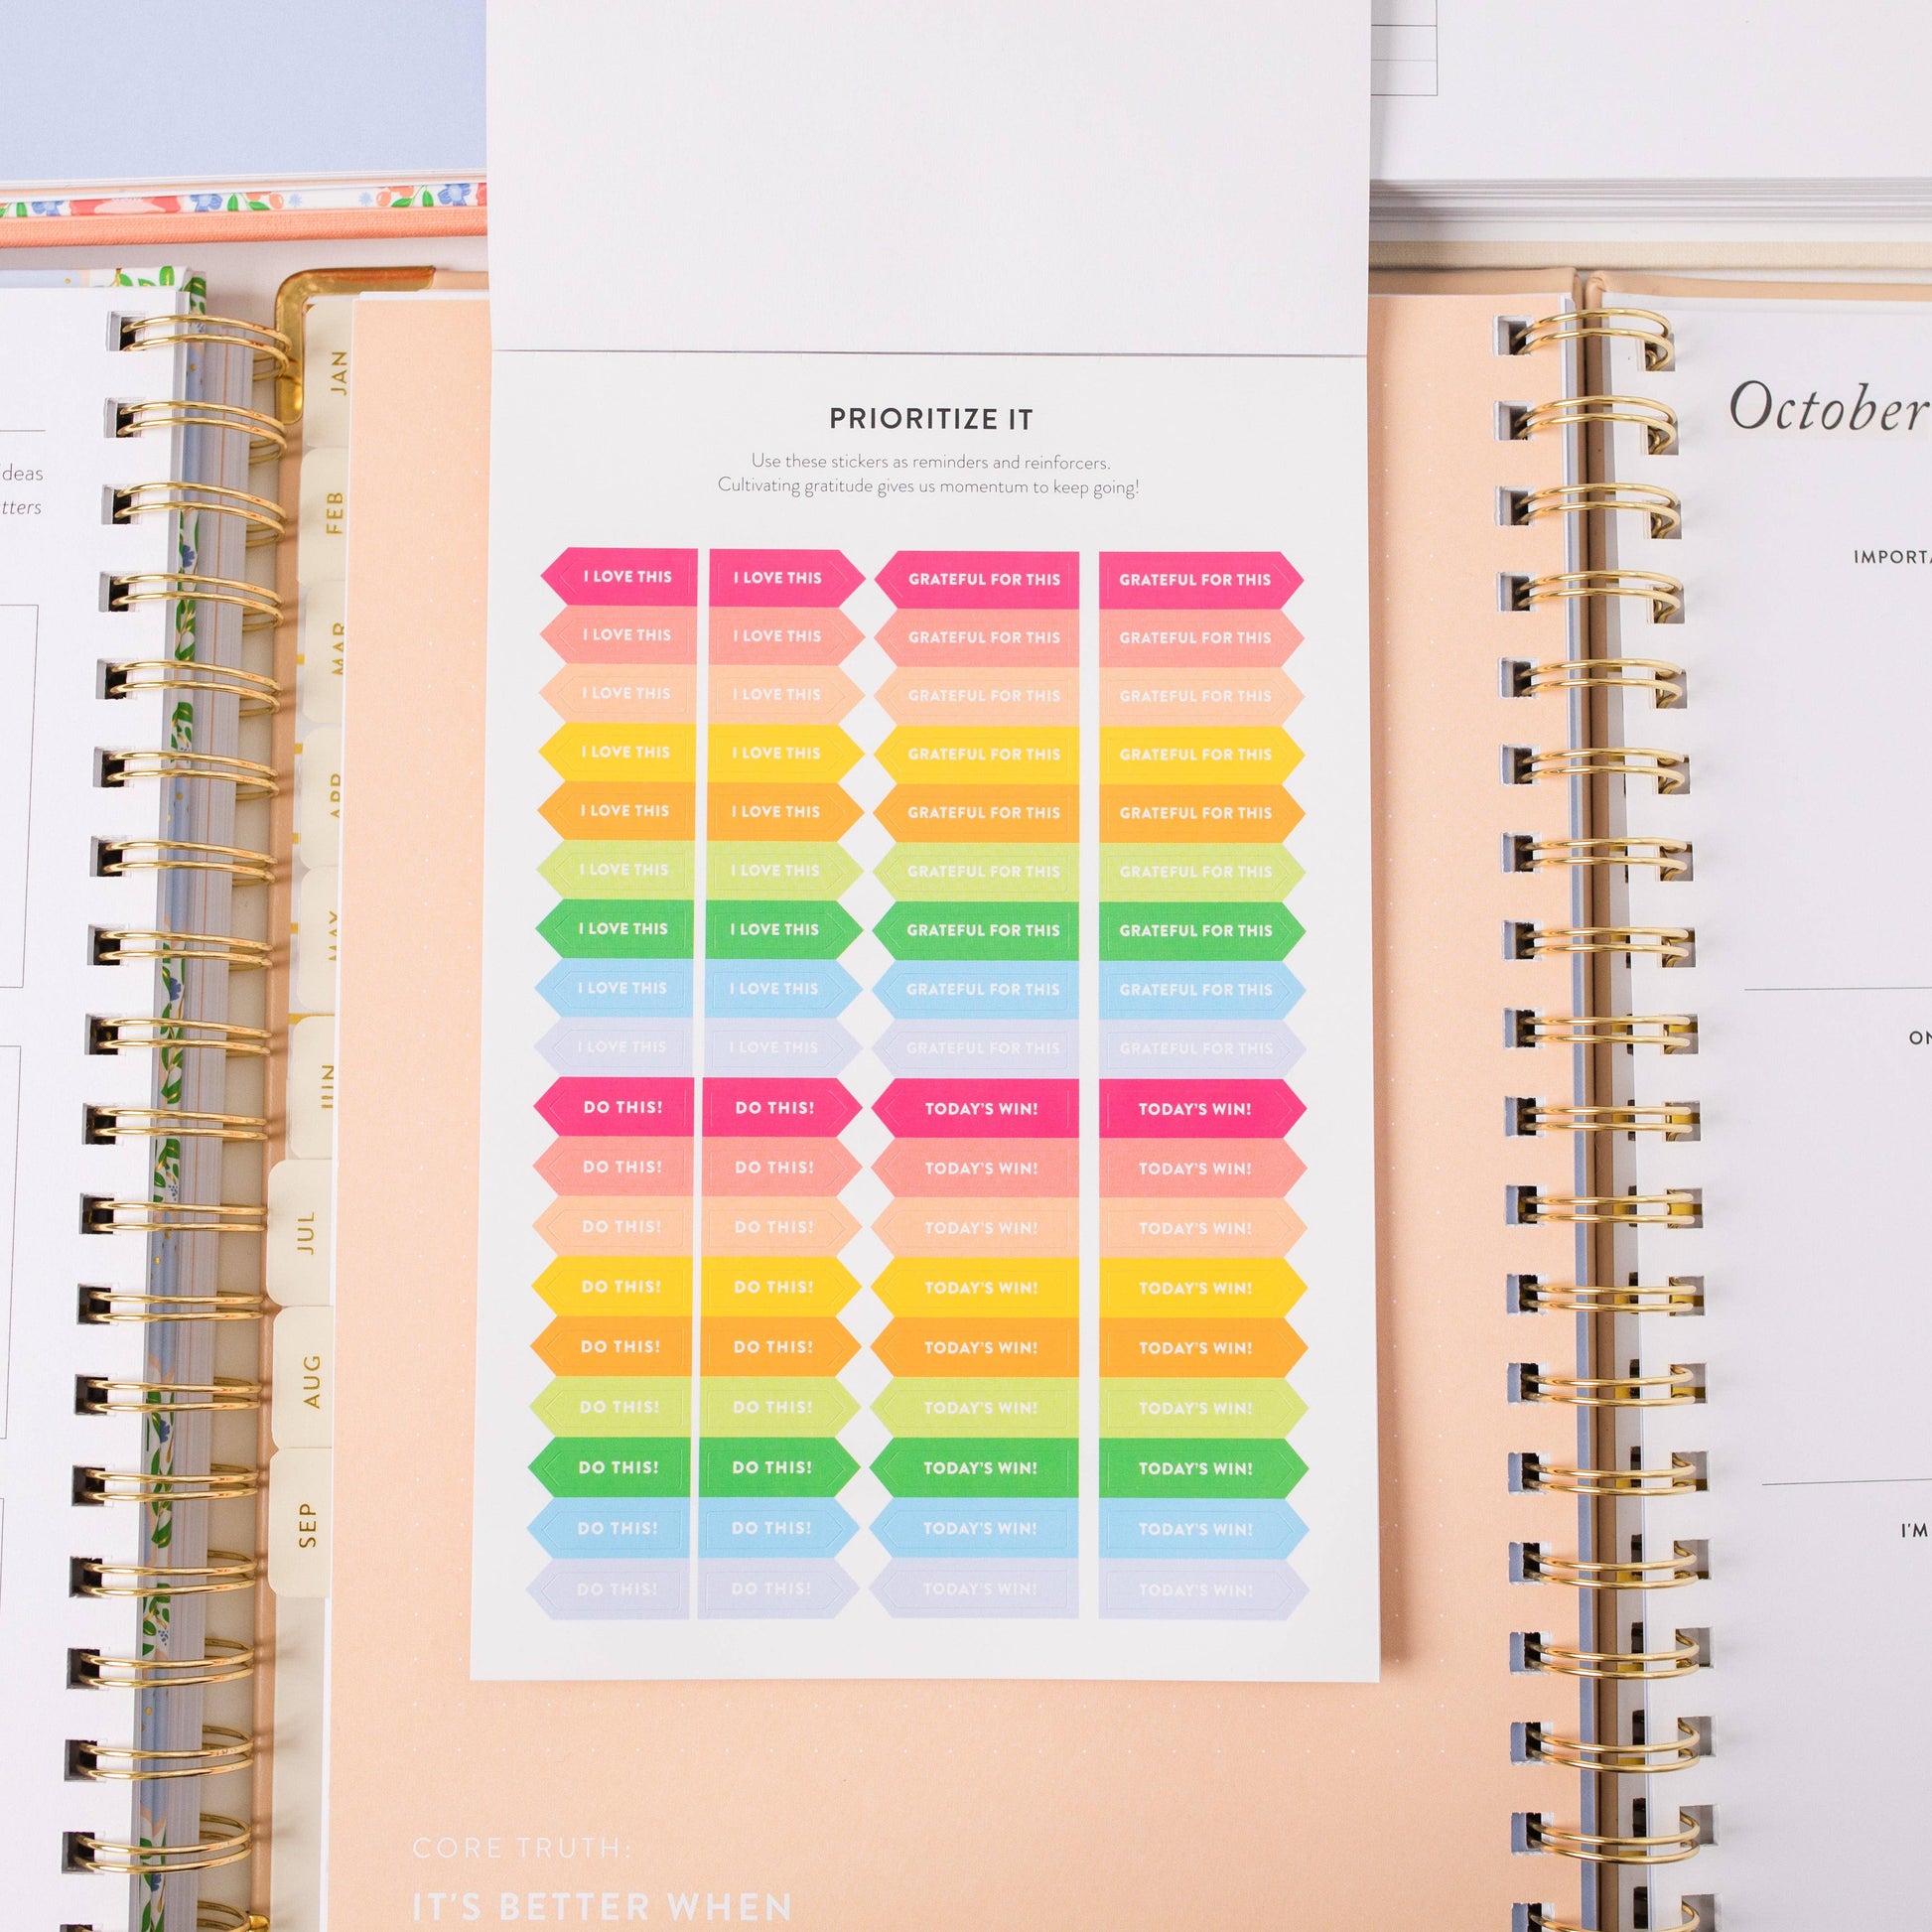 PRIORITIZE IT
Use these stickers as reminders and reinforcers.
Cultivating gratitude gives us momentum to keep going!
I LOVE THIS I LOVE THIS GRATEFUL FOR THIS GRATEFUL FOR THIS
I LOVE THIS I LOVE THIS GRATEFUL FOR THIS GRATEFUL FOR THIS
I LOVE THIS I LOVE THIS GRATEFUL FOR THIS GRATEFUL FOR THIS
I LOVE THIS I LOVE THIS GRATEFUL FOR THIS GRATEFUL FOR THIS
I LOVE THIS I LOVE THIS GRATEFUL FOR THIS GRATEFUL FOR THIS
I LOVE THIS I LOVE THIS GRATEFUL FOR THIS GRATEFUL FOR THIS
I LOVE THIS I LOVE THIS GRATEFUL FOR THIS GRATEFUL FOR THIS
I LOVE THIS I LOVE THIS GRATEFUL FOR THIS GRATEFUL FOR THIS
I LOVE THIS I LOVE THIS GRATEFUL FOR THIS GRATEFUL FOR THIS
DO THIS! DO THIS! TODAY'S WIN! TODAY'S WIN!
DO THIS! DO THIS! TODAY'S WIN! TODAY'S WIN!
DO THIS! DO THIS! TODAY'S WIN! TODAY'S WIN!
DO THIS! DO THIS! TODAY'S WIN! TODAY'S WIN!
DO THIS! DO THIS! TODAY'S WIN! TODAY'S WIN!
DO THIS! DO THIS! TODAY'S WIN! TODAY'S WIN!
DO THIS! DO THIS! TODAY'S WIN! TODAY'S WIN!
DO THIS! DO THIS! TODAY'S WIN! TODAY'S WIN!
DO THIS! DO THIS! TODAY'S WIN! TODAY'S WIN!
JAN
FEB
MAR
APR
MAY
JUN
JUL
AUG
SEP
CORE TRUTH:
IT'S BETTER WHEN
October
I'M